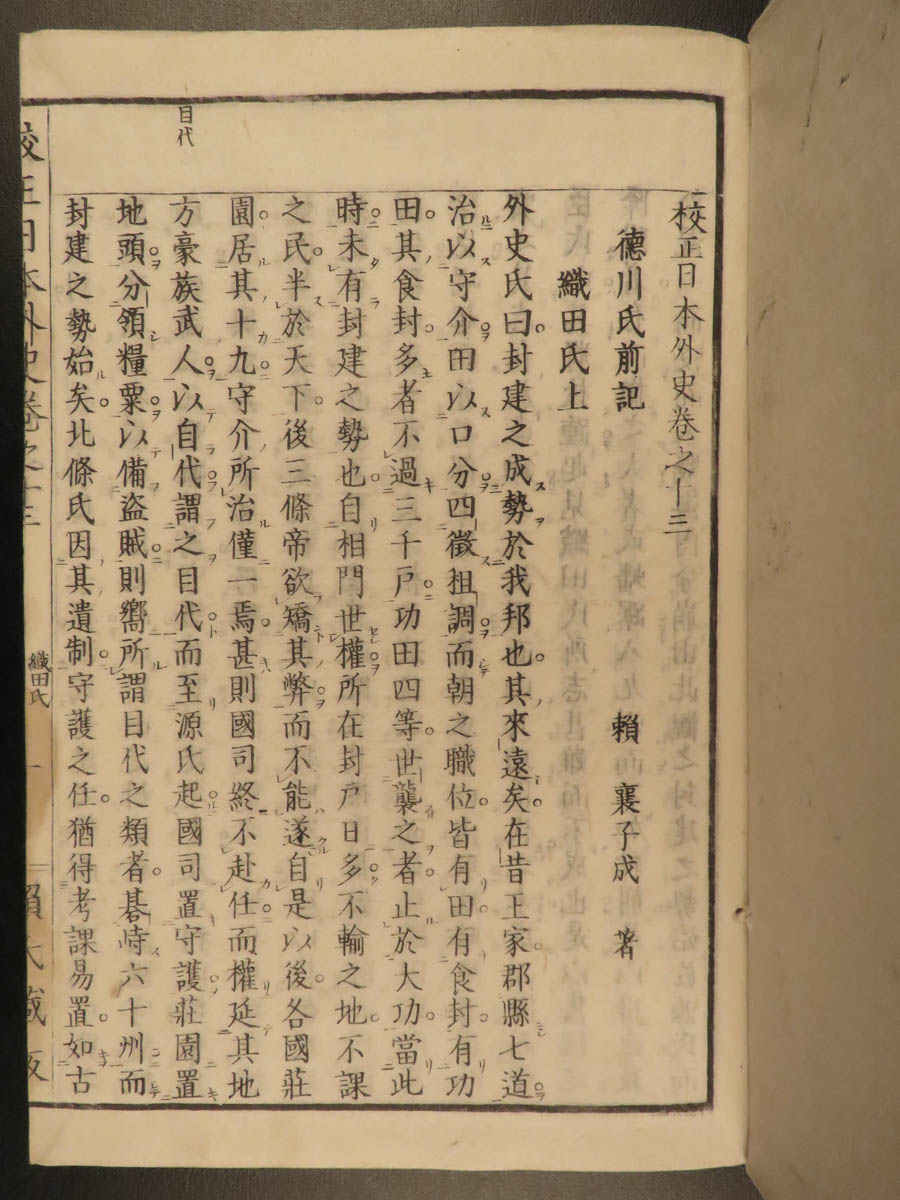 校正日本外史卷之十三
德川氏前記　賴　襄子成　著
織田氏上
外史氏曰封建之成勢於我邦也其來遠矣在昔王家郡縣七道
治以守介田以口分四徵租調而朝之職位皆有田有食封有功
田其食封多者不過三千戶功田四等世襲之者止於大功當此
時未有封建之勢也自相門世權所在封戶日多不輸之地不課
之民半於天下後三條帝欲矯其弊而不能遂自是以後各國莊
園居其十九守介所治僅一焉甚則國司終不赴任而權延其地
方豪族武人以自代謂之目代而至源氏起國司置守護莊園置
地頭分領糧粟以備盜賊則嚮所謂目代之類者碁峙六十州而
封建之勢始矣北條氏因其遺制守護之任猶得考課易置如古
目代
校正日本外史卷之十三
織田氏
一
賴氏藏版